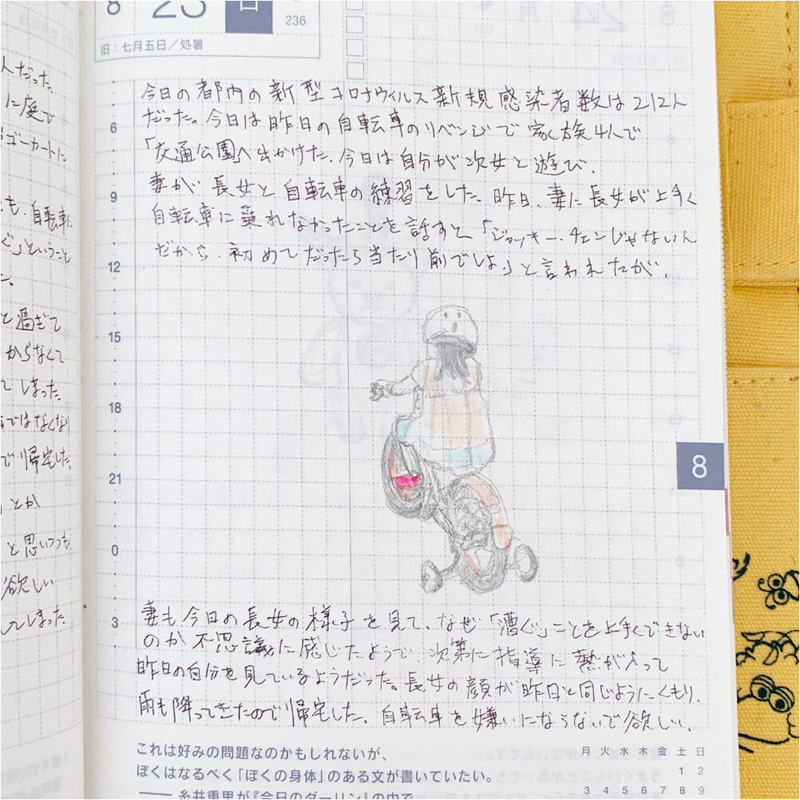 8
23
日
236
旧:七月五日/処暑
今日の都内の新型コロナウィルス新規感染者数は212人
だった。今日は昨日の自転車のリベンジで家族4人で
「交通公園」へ出かけた。今日は自分が次女と遊び、
妻が長女と自転車の練習をした。昨日、妻に長女が上手く
自転車に乗れなかったことを話すと「ジャッキー・チェンじゃないん
だから、初めてだったら当たり前でしょ」と言われたが、
6
9
12
15
18
21
0
3
妻も今日の長女の様子を見て、なぜ「漕ぐ」ことを上手くできない
のか不思議に感じたようで次第に指導に熱が入って
昨日の自分を見ているようだった。長女の顔が昨日と同じようにくもり、
雨も降ってきたので帰宅した。自転車を嫌いにならないで欲しい。
これは好みの問題なのかもしれないが、
ぼくはなるべく「ぼくの身体」のある文が書いていたい。
―― 糸井重里が『今日のダーリン』の中で
月 火 水 木 金 土 日
1 2
3 4 5 6 7 8 9
8
人だった。
に庭で
ゴーカートに
も、自転車に
ぐ」ということ
た。
と過ぎて
からなくて
てしまった。
ではなくなり
で帰宅した。
とか
と思いつつも
欲しい
してしまった